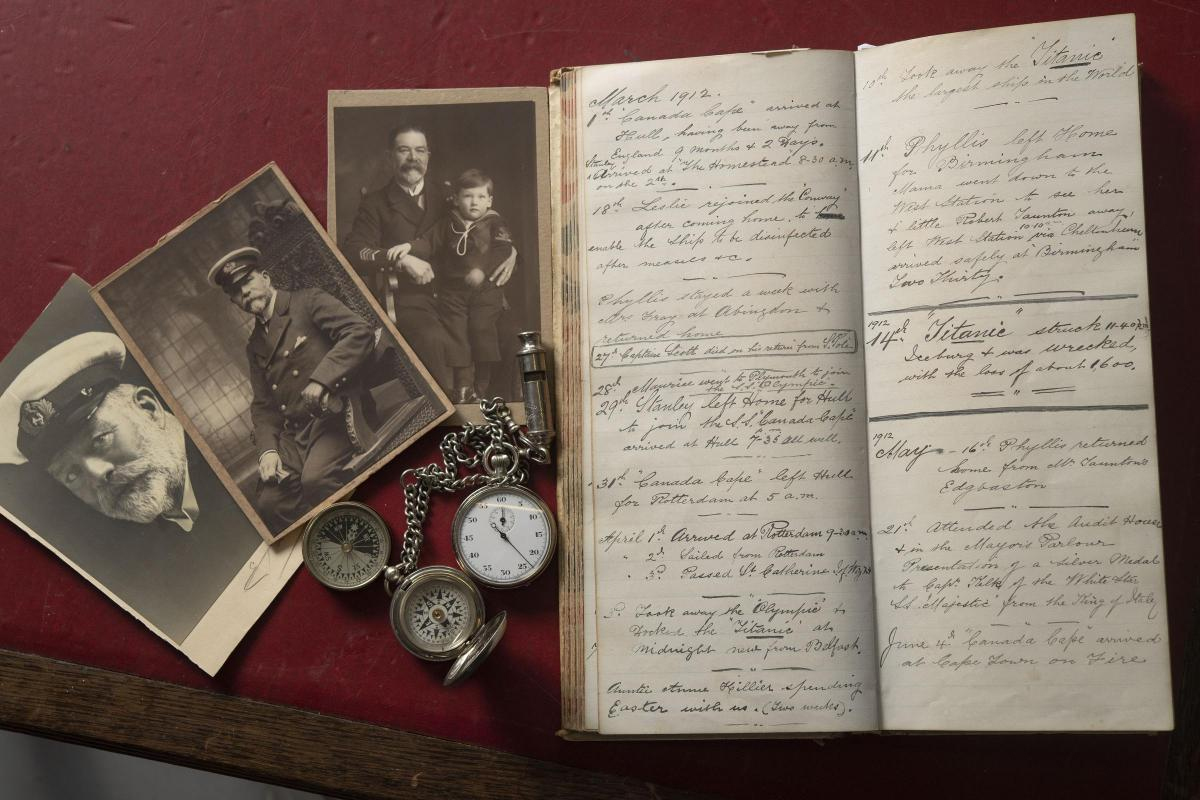 March 1912.
1st "Canada Cape" arrived at
Hull, having been away from
England 9 months & 2 Days.
Stanley Arrived at "The Homestead" 8-30 a.m.
on the 2nd.
18th Leslie rejoined the "Conway"
after coming home, to
enable the ship to be disinfected
after measles &c.
Phyllis stayed a week with
Mrs Gray at Abingdon &
returned home
27th Captain Scott died on his return from S. Pole
28th Maurice went to Plymouth to join
the S.S. "Olympic".
29th Stanley left Home for Hull
to join the S.S. "Canada Cape"
arrived at Hull 7-35 all well.
31st "Canada Cape" left Hull
for Rotterdam at 5 a.m.
April 1st Arrived at Rotterdam 9-30 a.m.
" 2nd Sailed from Rotterdam
" 3rd Passed St. Catherine
3. Took away the "Olympic" &
Docked the "Titanic" at
Midnight new from Belfast.
Auntie Annie Hillier spending
Easter with us. (Two weeks).
10th Took away the "Titanic"
the largest ship in the World
11th Phyllis left Home
for Birmingham
Mama went down to the
West Station to see her
& little Robert Taunton away
left West Station 10-10 via Cheltenham
arrived safely at Birmingham
Two Thirty.
1912
14th Titanic struck 11-40 pm
Iceburg & was wrecked,
with the loss of about 1600.
1912
May - 16th Phyllis returned
home from Mr Taunton's
Edgbaston
21st Attended the Audit House
& in the Mayor's Parlour
Presentation of a Silver Medal
to Capt. of the White Star
S.S. "Majestic" from the King of Italy
June 4th "Canada Cape" arrived
at Cape Town on Fire
60
5
10
15
20
25
30
35
40
45
50
55